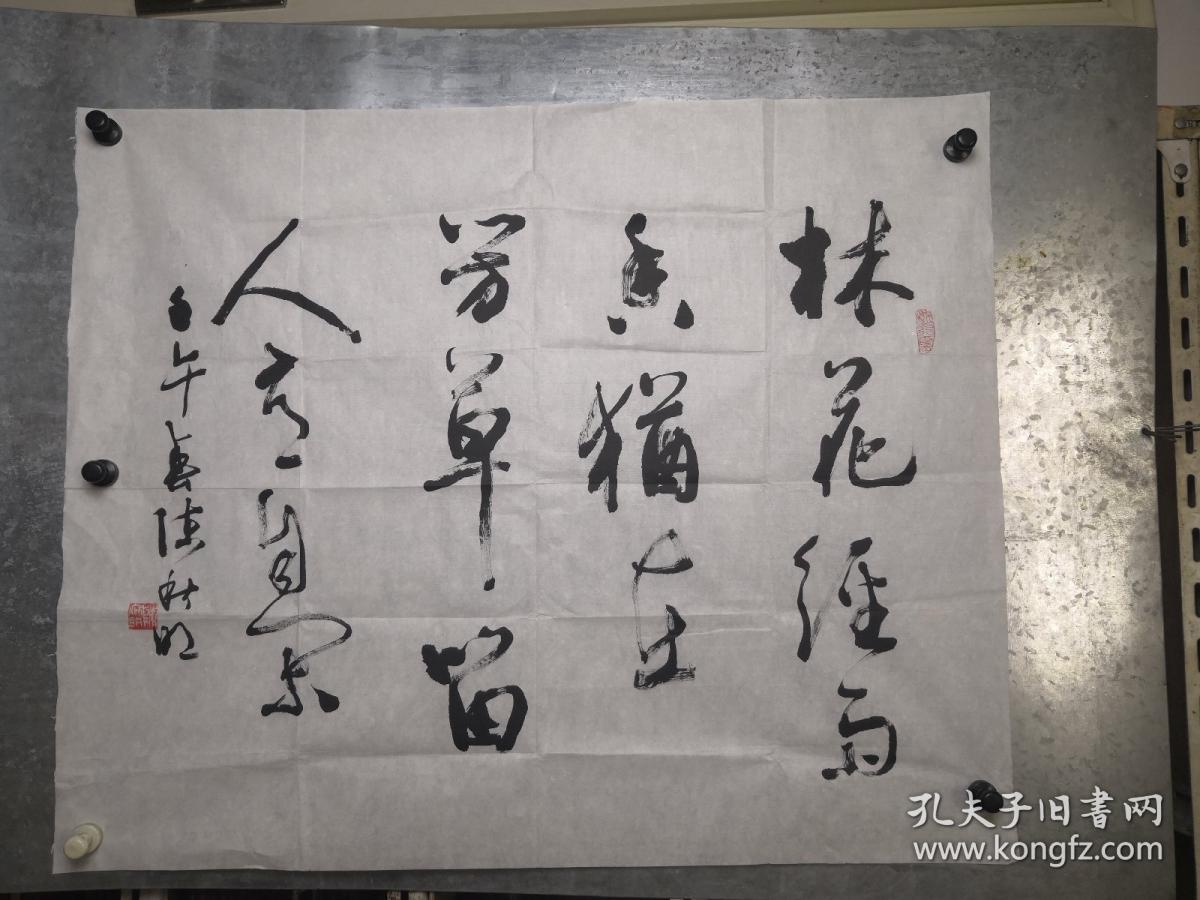 林花經雨
香猶在
芳草留
人意自閑
壬午春陳秋明
孔夫子旧書网
www.kongfz.com